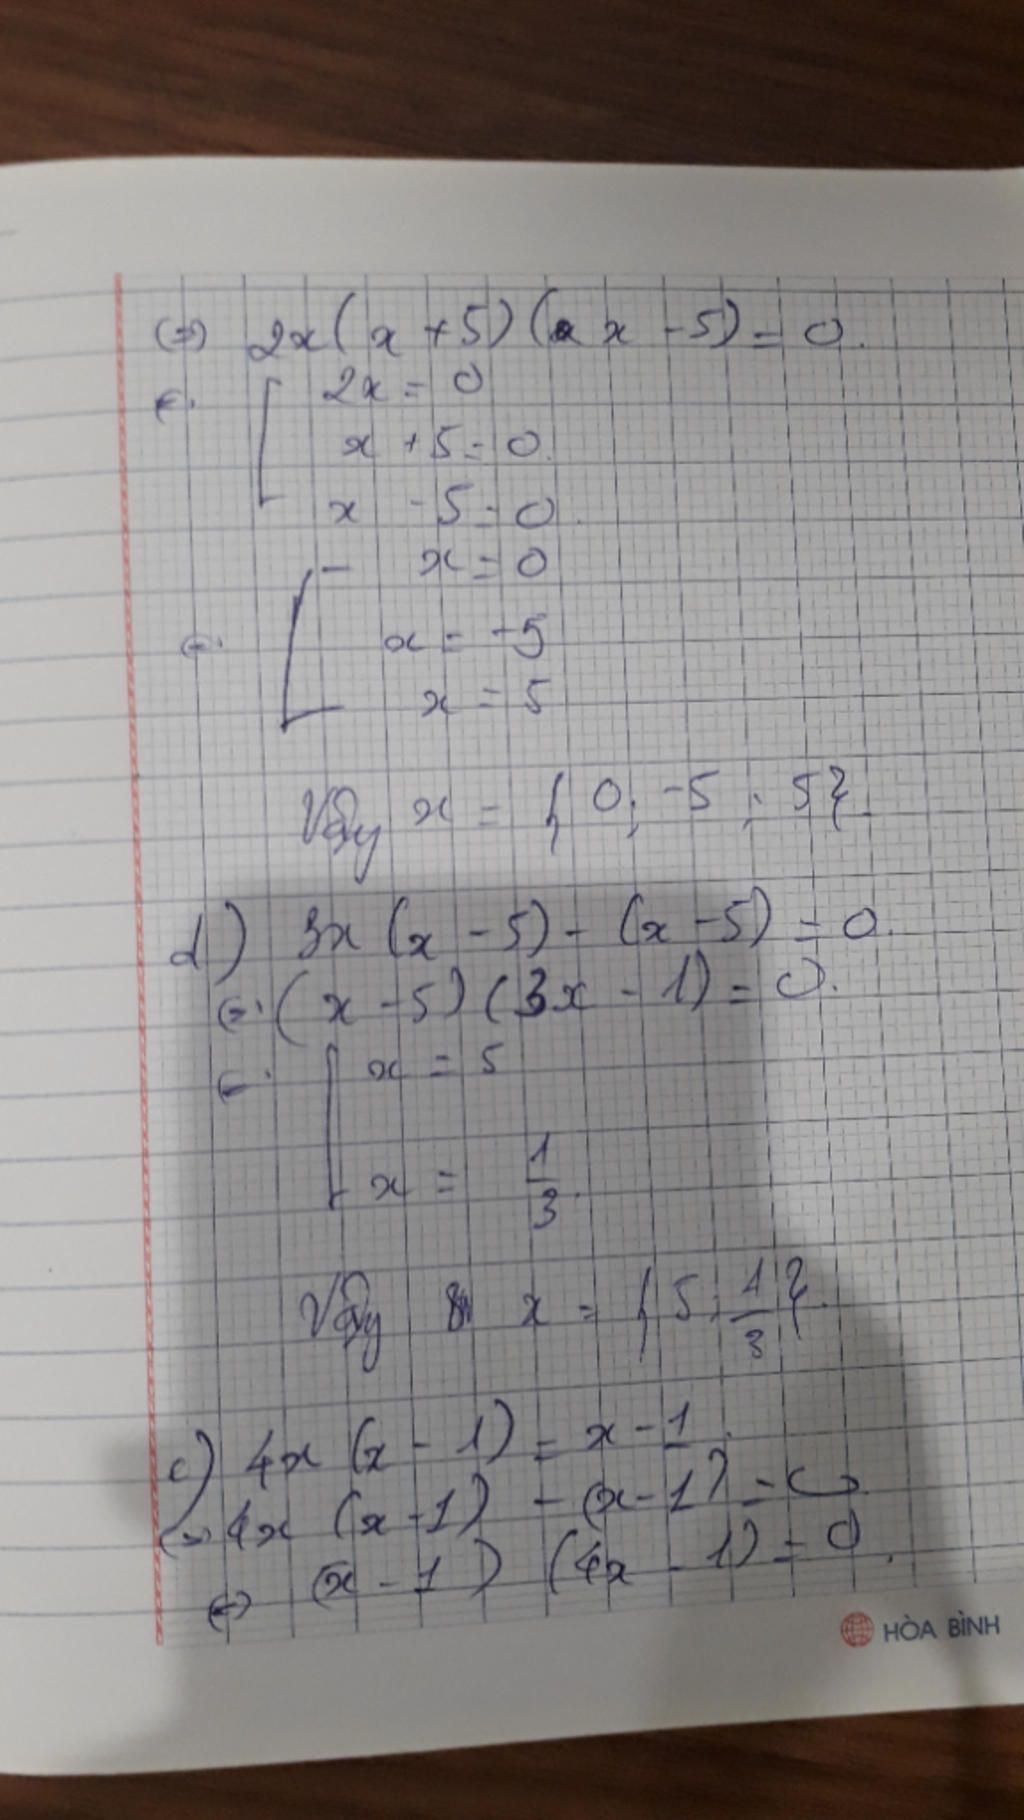 (=) 2x(x+5)(x-5)=0.
2x=0
x+5=0.
x-5=0.
x=0
x=-5
x=5
Vậy x={0;-5;5}.
d) 3x(x-5)-(x-5)=0.
(=) (x-5)(3x-1)=0.
x=5
x=1/3.
Vậy x={5;1/3}.
c) 4x(x-1)=x-1.
(=) 4x(x-1)-(x-1)=0
(=) (x-1)(4x-1)=0.
HÒA BÌNH